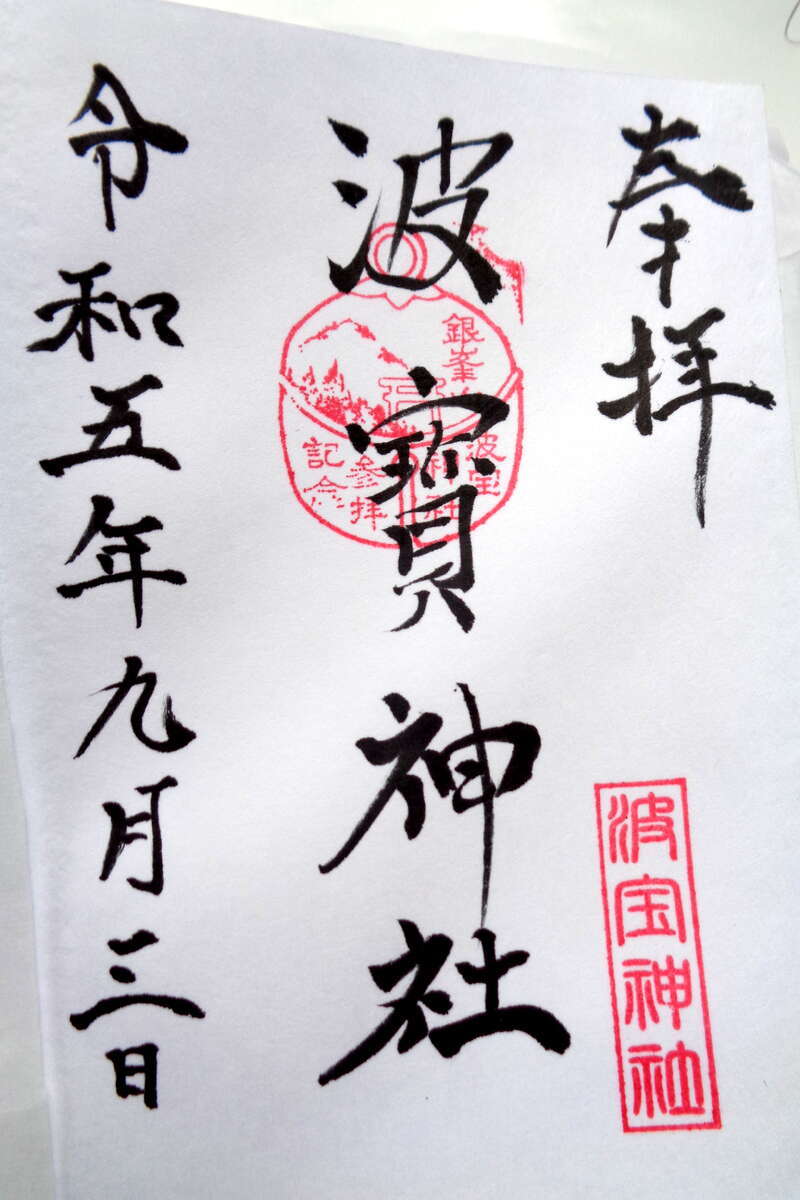 奉拝
波宝神社
波寳神社
銀峯山
波宝
神社
参拝
記念
令和五年九月三日